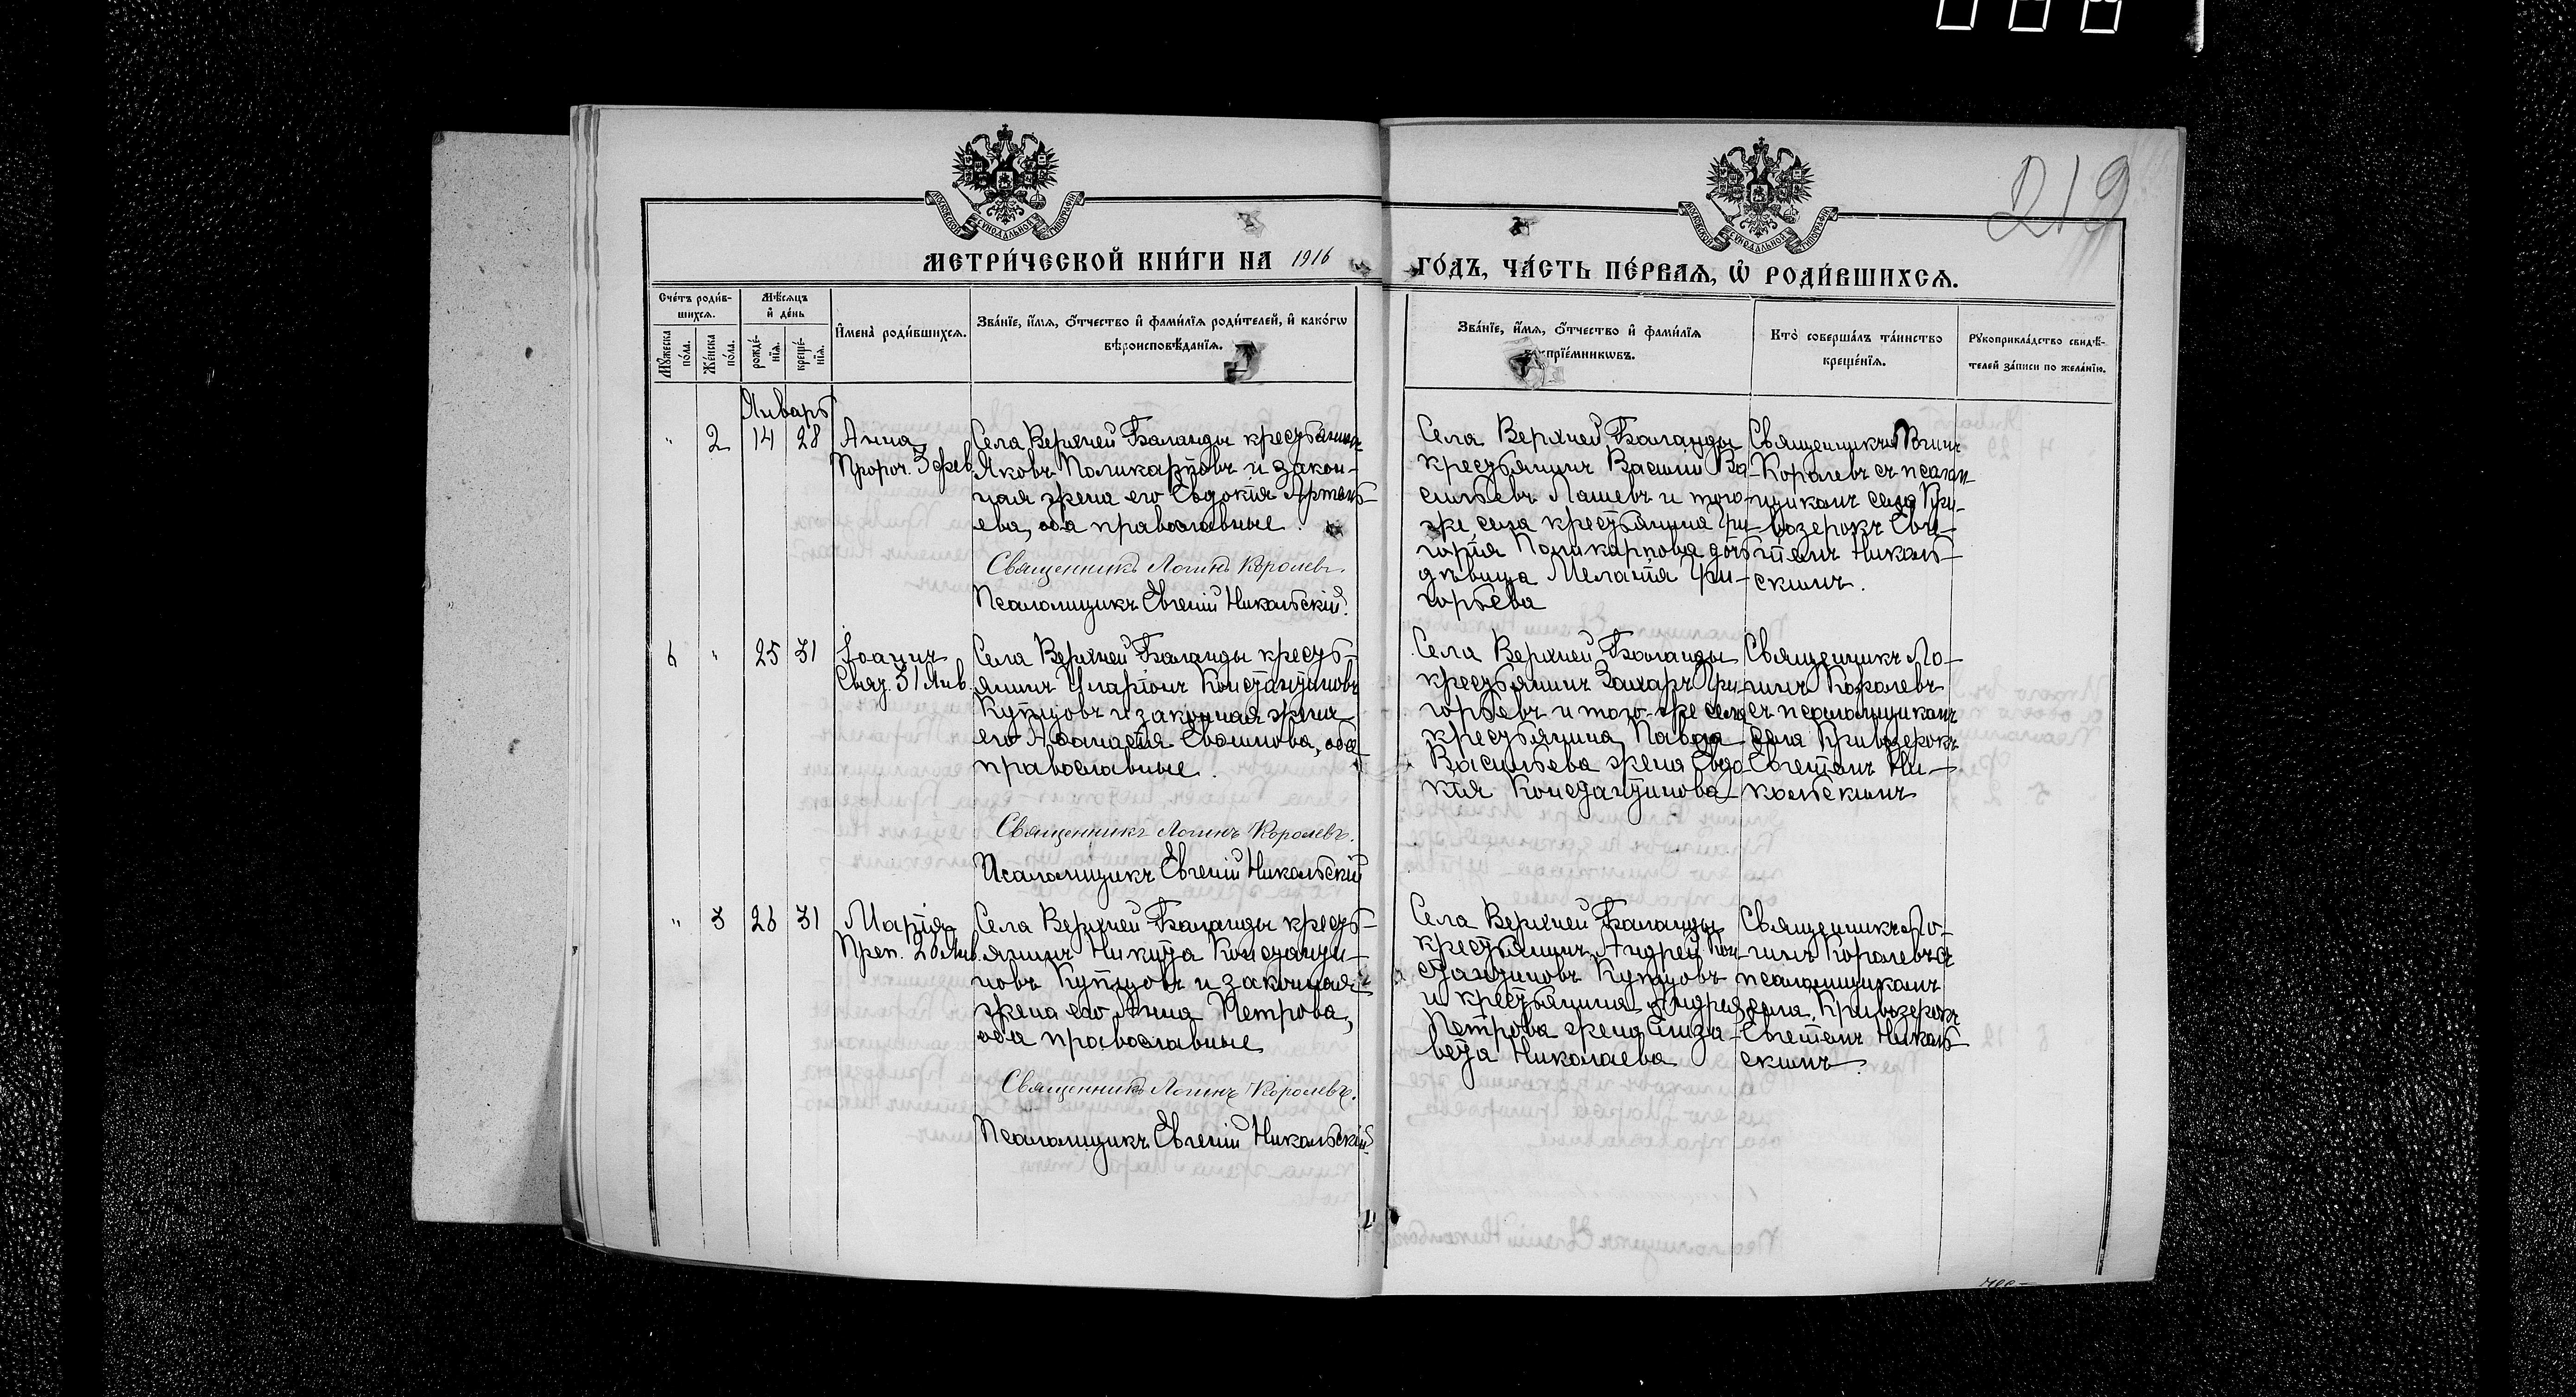 219
МОСКОВСКОЙ СѴНОДАЛЬНОЙ ТИПОГРАФІИ
МОСКОВСКОЙ СѴНОДАЛЬНОЙ ТИПОГРАФІИ
МЕТРИ́ЧЕСКОЙ КНИ́ГИ НА 1916 ГО́ДЪ, ЧА́СТЬ ПЕ́РВАЯ, Ѡ҆ РОДИ́ВШИХСЯ.
Сче́тъ роди́в-
шихся.
Мꙋ́жеска
по́ла.
Же́нска
по́ла.
Мѣ́сяцъ
и҆ де́нь
рожде́-
нїя.
креще́-
нїя.
И҆мена̀ роди́вшихся.
Зва́нїе, и҆́мя, ѻ҆́тчество и҆ фами́лїя роди́телей, и҆ како́гѡ
вѣроисповѣ́данїя.
Зва́нїе, и҆́мя, ѻ҆́тчество и҆ фами́лїя
воспрїе́мникѡвъ.
Кто̀ соверша́лъ та́инство
креще́нїя.
Рꙋкоприкла́дство свидѣ́-
телей за́писи по жела́нїю.
Январь
" 2 14 28
Анна
Пророч. 3 фев.
Села Верхней Баланды крестьянинъ
Яковъ Поликарповъ и закон-
ная жена его Евдокія Артемь-
ева, оба православные.
Священникъ Логинъ Королевъ.
Псаломщикъ Евгеній Никольскій.
Села Верхней Баланды
крестьянинъ Василій Ва-
сильевъ Лашевъ и того-
же села крестьянина Гри-
горія Поликарпова дочь
дѣвица Меланія Гри-
горьева
Священникъ Логинъ
Королевъ съ псалом-
щикомъ села Кри-
возерокъ Евге-
ніемъ Николь-
скимъ.
6 " 25 31
Іоаннъ
Свят. 31 Янв.
Села Верхней Баланды кресть-
янинъ Иларіонъ Константиновъ
Купцовъ и законная жена
его Афанасія Евфимова, оба
православные.
Священникъ Логинъ Королевъ.
Псаломщикъ Евгеній Никольскій
Села Верхней Баланды
крестьянинъ Захаръ Гри-
горьевъ и того-же села
крестьянина Павла
Васильева жена Евдо-
кія Константинова
Священникъ Ло-
гинъ Королевъ
съ псаломщикомъ
села Кривозерокъ
Евгеніемъ Ни-
кольскимъ
" 3 26 31
Марія
Преп. 26 Янв.
Села Верхней Баланды кресть-
янинъ Никита Константи-
новъ Купцовъ и законная
жена его Анна Петрова,
оба православные
Священникъ Логинъ Королевъ.
Псаломщикъ Евгеній Никольскій.
Села Верхней Баланды
крестьянинъ Андрей Кон-
стантиновъ Купцовъ
и крестьянина Андрея
Петрова жена Елиза-
вета Николаева
Священникъ Ло-
гинъ Королевъ съ
псаломщикомъ
села Кривозерокъ
Евгеніемъ Николь-
скимъ.